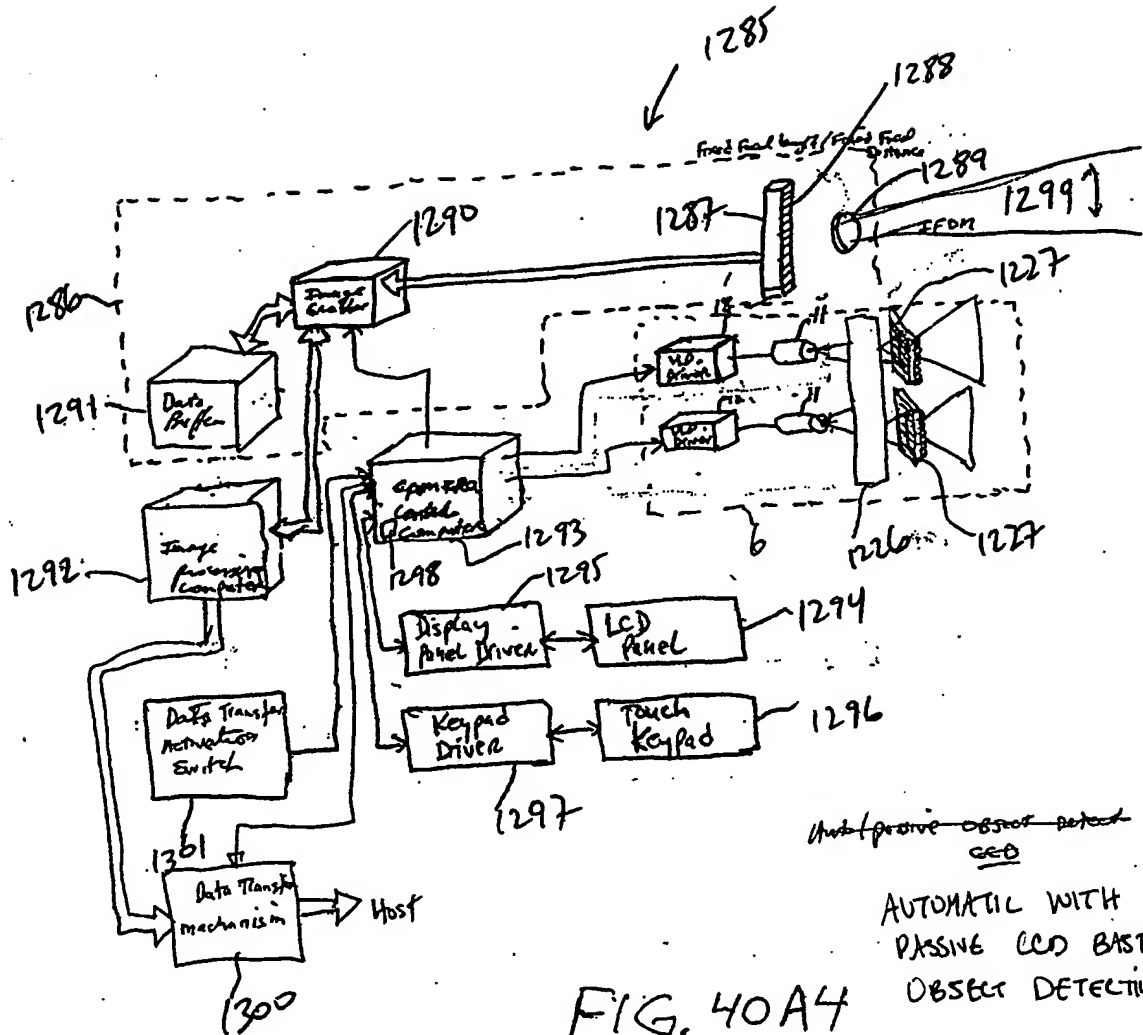 1285
1288
Fixed Focal Length / Fixed Focal
Distance
1289
1287
1299
IFOV
1290
1286
Image
Grabber
1227
12
11
VLD
Driver
1291
Data
Buffer
12
11
VLD
Driver
Camera
Control
Computer
6
1226
1227
1293
1298
Image
processing
Computer
1292
1295
Display
Panel Driver
LCD
Panel
1294
Data Transfer
Activation
Switch
Keypad
Driver
Touch
Keypad
1296
1297
1301
Data Transfer
mechanism
Host
1300
passive object detect
CCD
AUTOMATIC WITH
PASSIVE CCD BAS
OBJECT DETECTI
FIG. 40A4